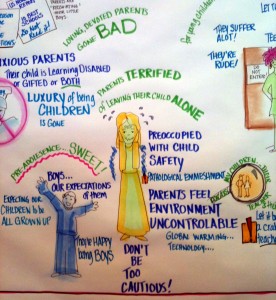 LOVING, DEVOTED PARENTS
GONE BAD
Do Not
Read it!
THEY SUFFER
ALOT!
THEY'RE
RUDE!
DO NOT
ENTER
ANXIOUS PARENTS
Their child is Learning DISABLED
or GIFTED or BOTH
LUXURY of being
CHILDREN
IS GONE
PARENTS TERRIFIED
of LEAVING THEIR CHILD ALONE
PREOCCUPIED
WITH CHILD
SAFETY
PATHOLOGICAL ENMESHMENT
PARENTS FEEL
ENVIRONMENT
UNCONTROLABLE
GLOBAL WARMING...
TECHNOLOGY....
PRE-ADOLESENCE... SWEET!
BOYS...
OUR EXPECTATIONS
of them
EXPECTING OUR
CHILDREN to be
ALL GROWN UP
They're HAPPY
being BOYS
DON'T
BE
TOO
CAUTIOUS!